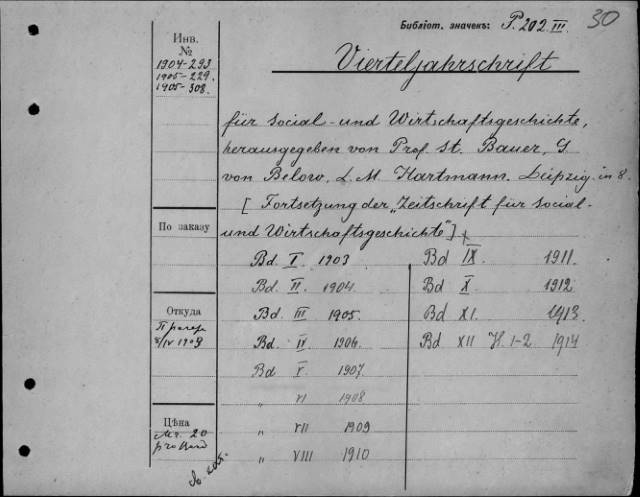 Библіот. значекъ: P. 202 III.
30
Инв.
№
1904-293
1905-229.
1905-308.
Vierteljahrschrift
für Social- und Wirtschaftsgeschichte,
herausgegeben von Prof. St. Bauer, G.
von Below, L. M. Hartmann. Leipzig. in 8.
[Fortsetzung der „Zeitschrift für Social-
und Wirtschaftsgeschichte"]
По заказу
Bd. I 1903
Bd. II. 1904.
Bd. III 1905.
Bd. IV 1906.
Bd V. 1907.
„ VI 1908
„ VII 1909
„ VIII 1910
Bd IX. 1911.
Bd X 1912
Bd XI. 1913.
Bd XII H. 1-2 1914
Откуда
Прагер
1903
Цѣна
Mk. 20
pro Band